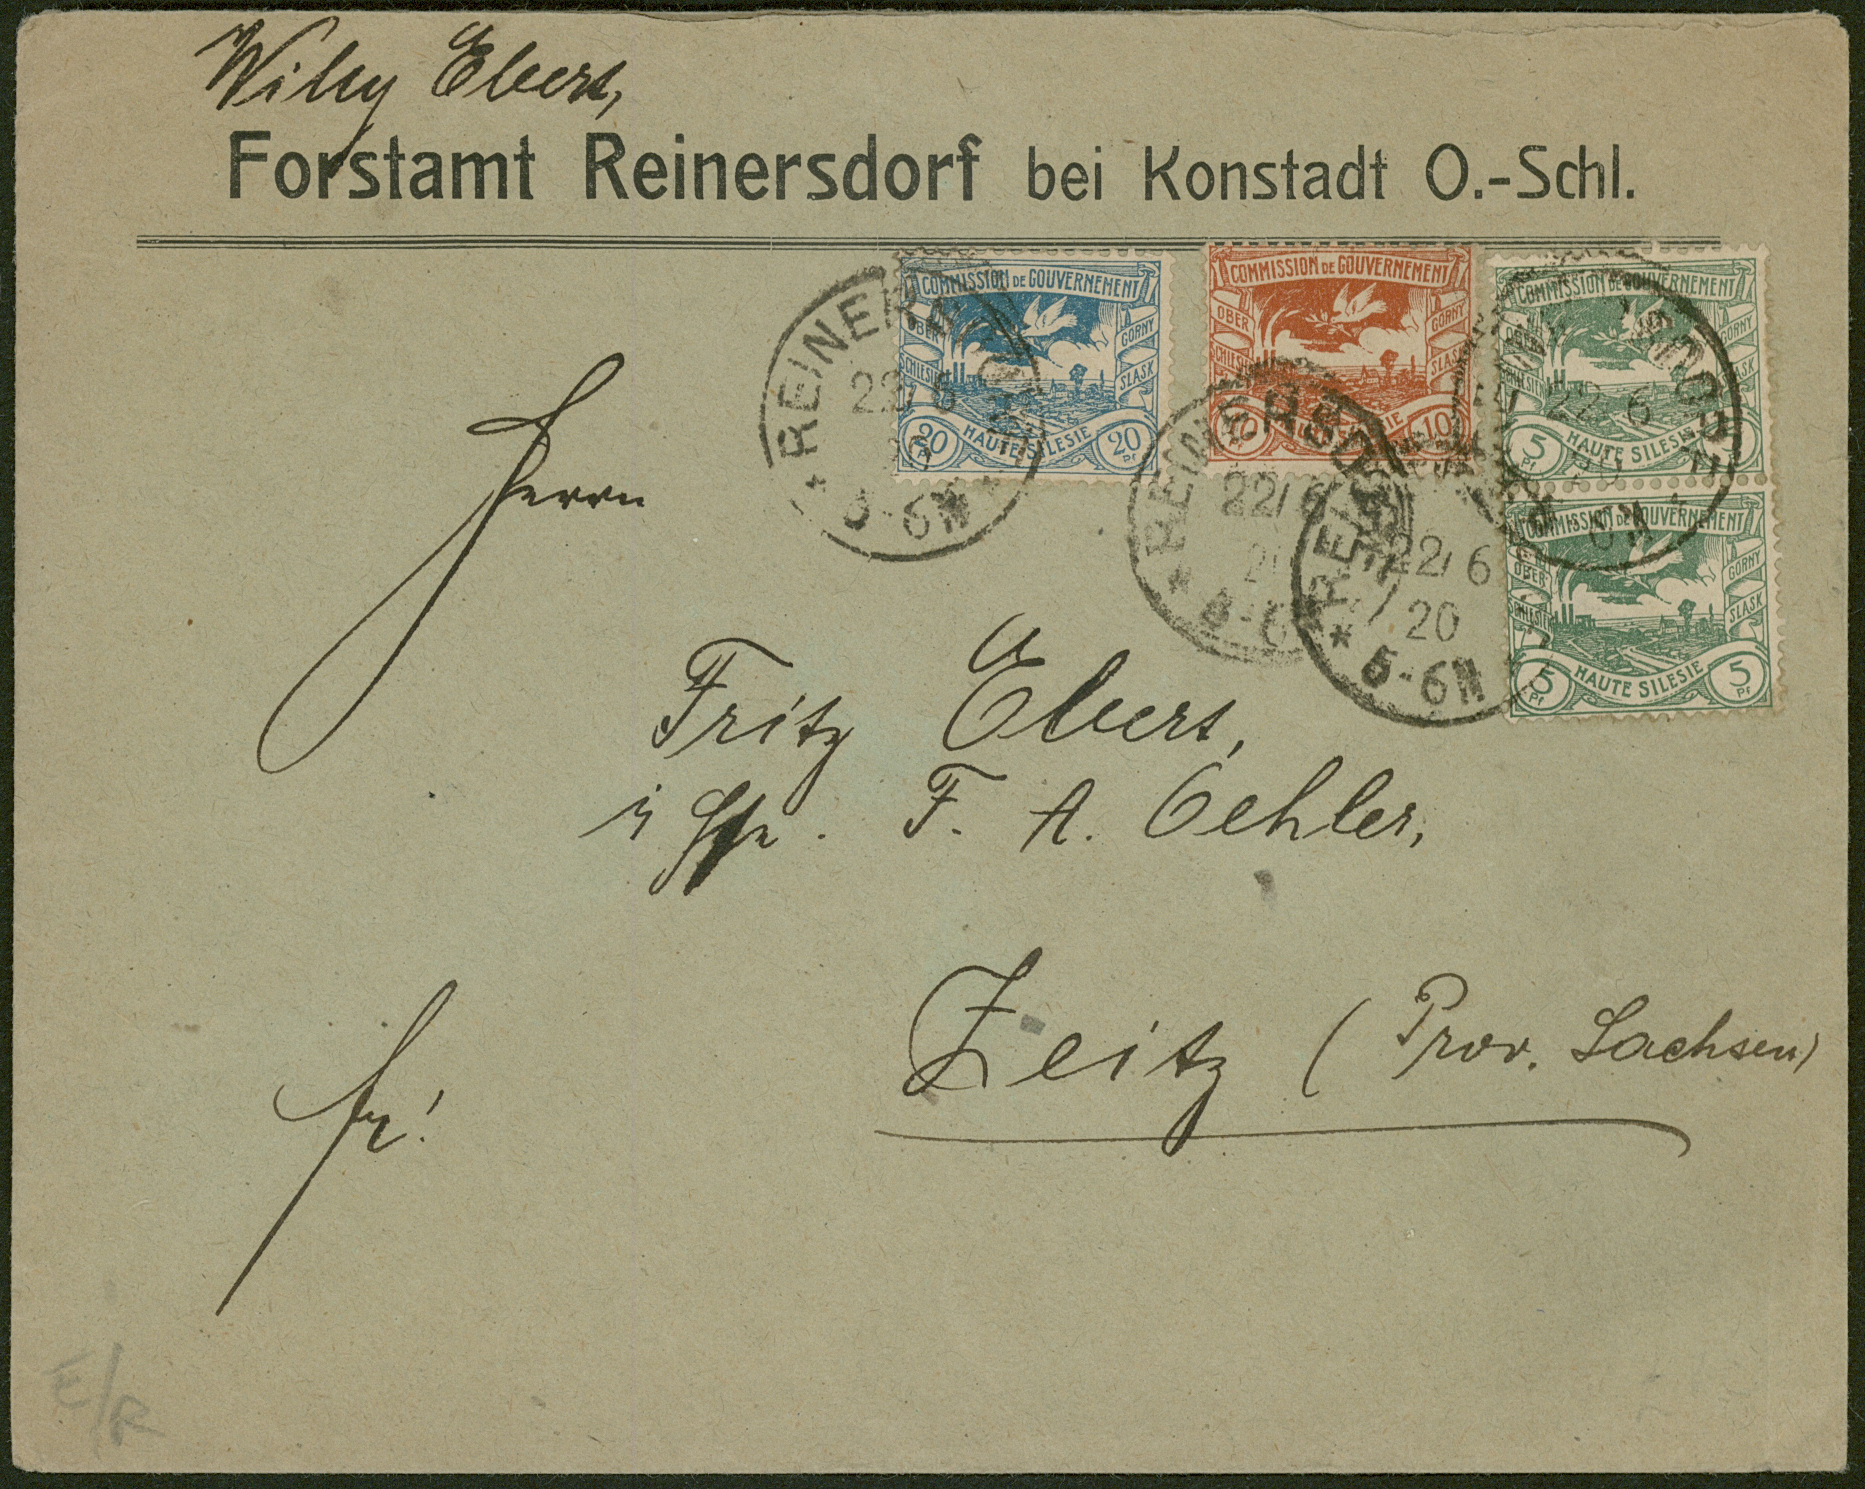 Willy Ebers,
Forstamt Reinersdorf bei Konstadt O.-Schl.
COMMISSION DE GOUVERNEMENT
OBER SCHLESIEN
GORNY SLASK
20 Pf HAUTE SILESIE 20 Pf
COMMISSION DE GOUVERNEMENT
OBER SCHLESIEN
GORNY SLASK
10 SILESIE 10
COMMISSION DE GOUVERNEMENT
OBER SCHLESIEN
GORNY SLASK
5 Pf HAUTE SILESIE
COMMISSION DE GOUVERNEMENT
OBER SCHLESIEN
GORNY SLASK
5 Pf HAUTE SILESIE 5 Pf
* REINERSDORF *
22/6
20
5-6N
* REINERSDORF
22/6
20
5-6N
* REINERSDORF
22/6
20
5-6N
REINERSDORF *
22/6
20
6N
Herrn
Fritz Ebers,
F. A. Oehler,
Zeitz (Prov. Sachsen)
fr!
E/R